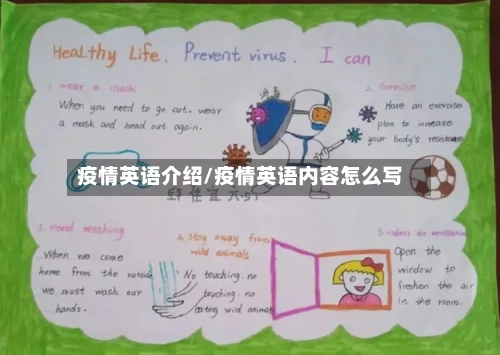 Healthy Life. Prevent virus. I can
1. wear a mask
When you need to go out. wear
a mask and head out again.
2. Exercise
Have an exercise
plan to increase
your body's resistance
疫情英语介绍/疫情英语内容怎么写
3. Hand washing
When we come
home from the outside
we must wash our
hands.
4. Stay away from
wild animals
No touching. no
touching. no
eating wild animals
5. Indoor air ventilation
Open the
window to
freshen the air
in the room.